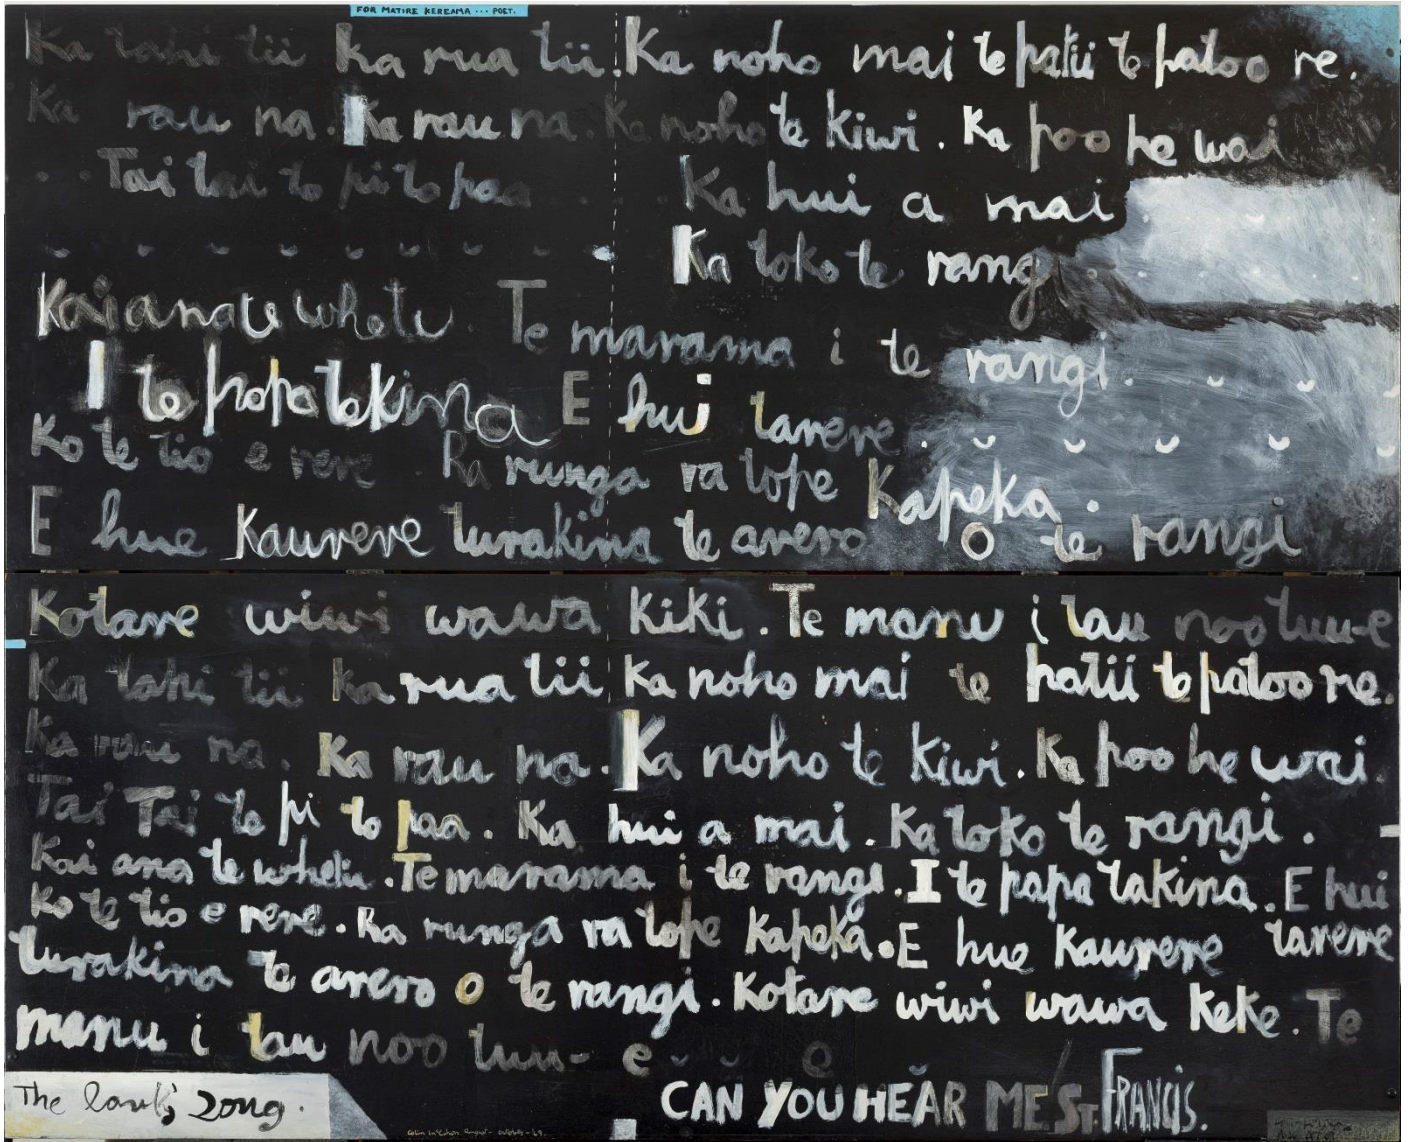 FOR MATIRE KEREAMA ... POET.
Ka tahi tii ka rua tii. Ka noho mai te patii te patoo re.
Ka rau na. Ka rau na. Ka noho te kiwi. Ka poo he wai
. . Tai tai to pi to paa . . . . Ka hui a mai
Ka toko te rang
Kai ana te whetu. Te marama i te rangi.
I te papa tekina E hui tarere.
Ko te tio e rere. Ra runga ra tope Kapeka.
E hue Kaurere turakina te arero O te rangi
Kotare wiwi wawa kiki. Te manu i tau noo tuu-e
Ka tahi tii ka rua tii Ka noho mai te patii te patoo re.
Ka rau na. Ka rau na. Ka noho te kiwi. Ka poo he wai.
Tai Tai te pi to paa. Ka hui a mai. Ka toko te rangi.
Kai ana te whetu. Te marama i te rangi. I te papa takina. E hui
Ko te tio e rere. Ra runga ra tope Kapeka. E hue Kaurere tarere
turakina te arero o te rangi. Kotare wiwi wawa keke. Te
manu i tau noo tuu- e e
The lark's song.
CAN YOU HEAR ME ST. FRANCIS.
Colin McCahon August - October - '69.